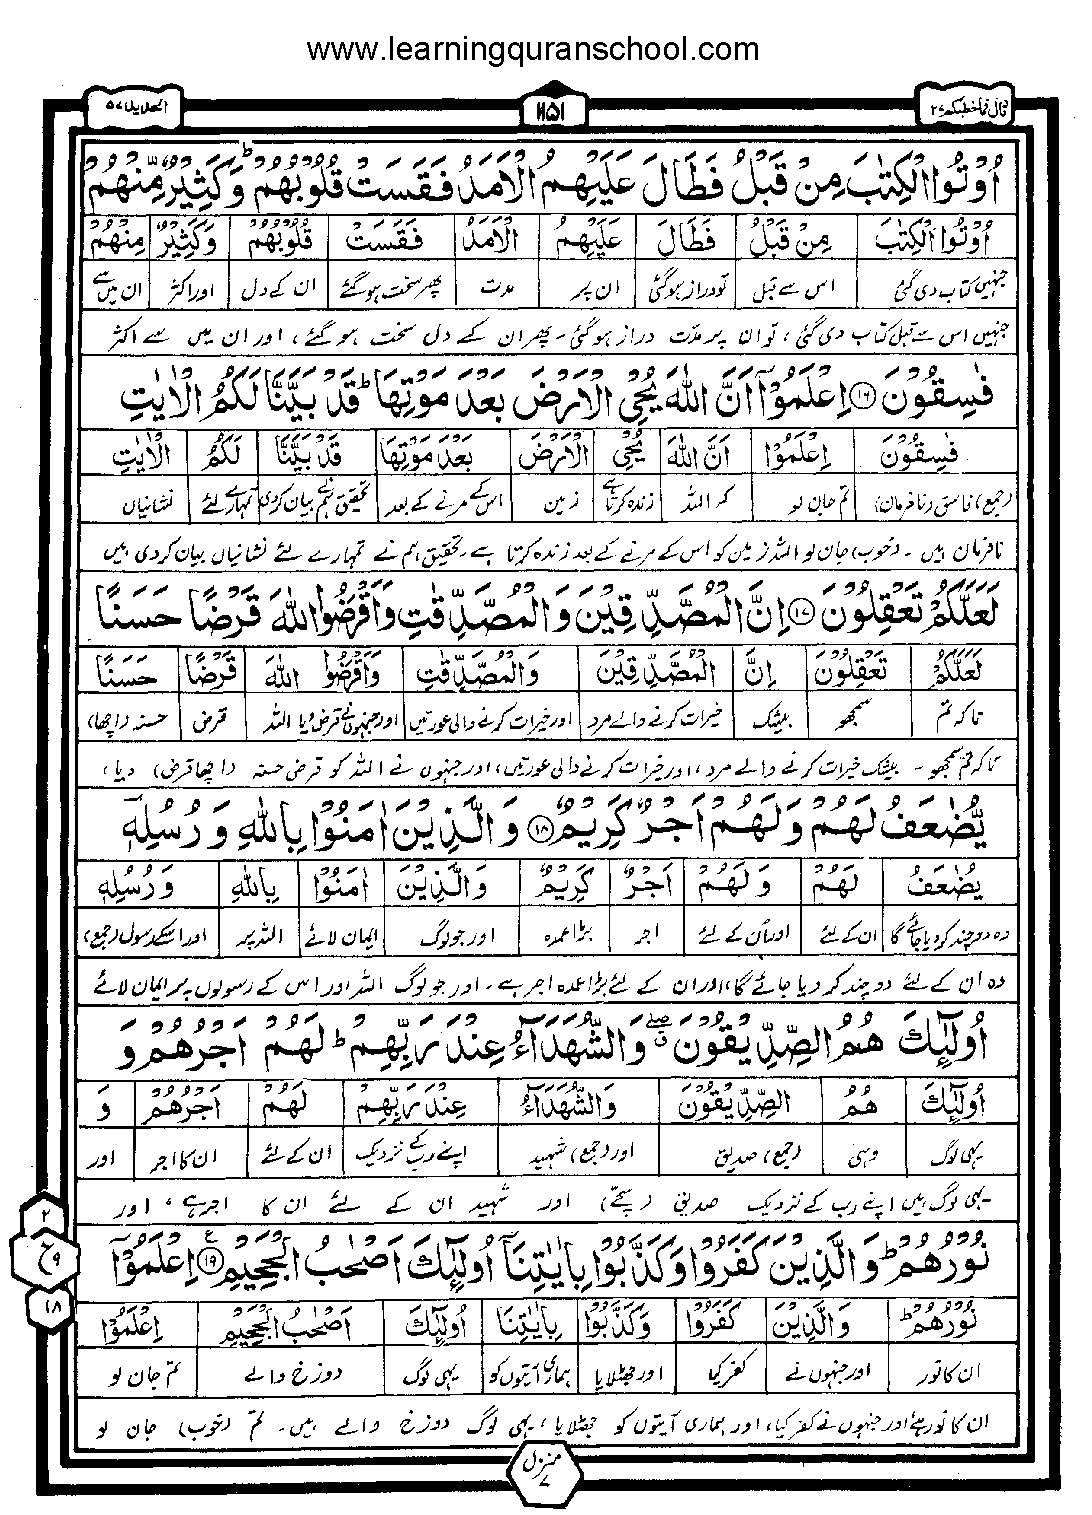 www.learningquranschool.com
قال فما خطبكم ٢٧
١١٥١
الحديد ٥٧
اُوْتُوا الْكِتٰبَ مِنْ قَبْلُ فَطَالَ عَلَيْهِمُ الْاَمَدُ فَقَسَتْ قُلُوْبُهُمْ ؕ وَكَثِيْرٌ مِّنْهُمْ
اُوْتُوا الْكِتٰبَ مِنْ قَبْلُ فَطَالَ عَلَيْهِمُ الْاَمَدُ فَقَسَتْ قُلُوْبُهُمْ وَكَثِيْرٌ مِنْهُمْ
جنہیں کتاب دی گئی اس سے قبل تو دراز ہوگئی ان پر مدت پھر سخت ہوگئے ان کے دل اور اکثر ان میں سے
جنہیں اس سے قبل کتاب دی گئی، تو ان پر مدّت دراز ہو گئی۔ پھر ان کے دل سخت ہو گئے، اور ان میں سے اکثر
فٰسِقُوْنَ ١٦ اِعْلَمُوْۤا اَنَّ اللّٰهَ يُحْيِ الْاَرْضَ بَعْدَ مَوْتِهَا ؕ قَدْ بَيَّنَّا لَكُمُ الْاٰيٰتِ
فٰسِقُوْنَ اِعْلَمُوْۤا اَنَّ اللّٰهَ يُحْيِ الْاَرْضَ بَعْدَ مَوْتِهَا قَدْ بَيَّنَّا لَكُمُ الْاٰيٰتِ
(جمع) فاسق (نافرمان) تم جان لو کہ اللہ زندہ کرتا ہے زمین اس کے مرنے کے بعد تحقیق ہم نے بیان کردی تمہارے لئے نشانیاں
نافرمان ہیں ۔ (خوب) جان لو اللہ زمین کو اس کے مرنے کے بعد زندہ کرتا ہے۔ تحقیق ہم نے تمہارے لئے نشانیاں بیان کردی ہیں
لَعَلَّكُمْ تَعْقِلُوْنَ ١٧ اِنَّ الْمُصَّدِّقِيْنَ وَالْمُصَّدِّقٰتِ وَاَقْرَضُوا اللّٰهَ قَرْضًا حَسَنًا
لَعَلَّكُمْ تَعْقِلُوْنَ اِنَّ الْمُصَّدِّقِيْنَ وَالْمُصَّدِّقٰتِ وَاَقْرَضُوا اللّٰهَ قَرْضًا حَسَنًا
تاکہ تم سمجھو بیشک خیرات کرنے والے مرد اور خیرات کرنے والی عورتیں اور جنہوں نے قرض دیا اللہ قرض حسنہ (اچھا)
تاکہ تم سمجھو ۔ بیشک خیرات کرنے والے مرد، اور خیرات کرنے والی عورتیں، اور جنہوں نے اللہ کو قرض حسنہ (اچھا قرض) دیا،
يُّضٰعَفُ لَهُمْ وَلَهُمْ اَجْرٌ كَرِيْمٌ ١٨ وَالَّذِيْنَ اٰمَنُوْا بِاللّٰهِ وَرُسُلِهٖۤ
يُضٰعَفُ لَهُمْ وَلَهُمْ اَجْرٌ كَرِيْمٌ وَالَّذِيْنَ اٰمَنُوْا بِاللّٰهِ وَرُسُلِهٖ
وہ دوچند کردیا جائے گا ان کے لئے اور اُن کے لئے اجر بڑا عمدہ اور جو لوگ ایمان لائے اللہ پر اور اسکے رسول (جمع)
وہ ان کے لئے دوچند کر دیا جائے گا، اور ان کے لئے بڑا عمدہ اجر ہے۔ اور جو لوگ اللہ اور اس کے رسولوں پر ایمان لائے
اُولٰٓئِكَ هُمُ الصِّدِّيْقُوْنَ وَالشُّهَدَآءُ عِنْدَ رَبِّهِمْ ؕ لَهُمْ اَجْرُهُمْ وَ
اُولٰٓئِكَ هُمُ الصِّدِّيْقُوْنَ وَالشُّهَدَآءُ عِنْدَ رَبِّهِمْ لَهُمْ اَجْرُهُمْ وَ
یہی لوگ وہی (جمع) صدیق اور (جمع) شہید اپنے رب کے نزدیک ان کے لئے ان کا اجر اور
یہی لوگ ہیں اپنے رب کے نزدیک صدیق (سچّے) اور شہید ان کے لئے ان کا اجر ہے، اور
نُوْرُهُمْ ؕ وَالَّذِيْنَ كَفَرُوْا وَكَذَّبُوْا بِاٰيٰتِنَاۤ اُولٰٓئِكَ اَصْحٰبُ الْجَحِيْمِ ١٩ اِعْلَمُوْۤا
نُوْرُهُمْ ؕ وَالَّذِيْنَ كَفَرُوْا وَكَذَّبُوْا بِاٰيٰتِنَا اُولٰٓئِكَ اَصْحٰبُ الْجَحِيْمِ اِعْلَمُوْۤا
ان کا نور اور جنہوں نے کفر کیا اور جھٹلایا ہماری آیتوں کو یہی لوگ دوزخ والے تم جان لو
ان کا نور ہے، اور جنہوں نے کفر کیا، اور ہماری آیتوں کو جھٹلایا، یہی لوگ دوزخ والے ہیں۔ تم (خوب) جان لو
٢
ع ٩
١٨
منزل ٧